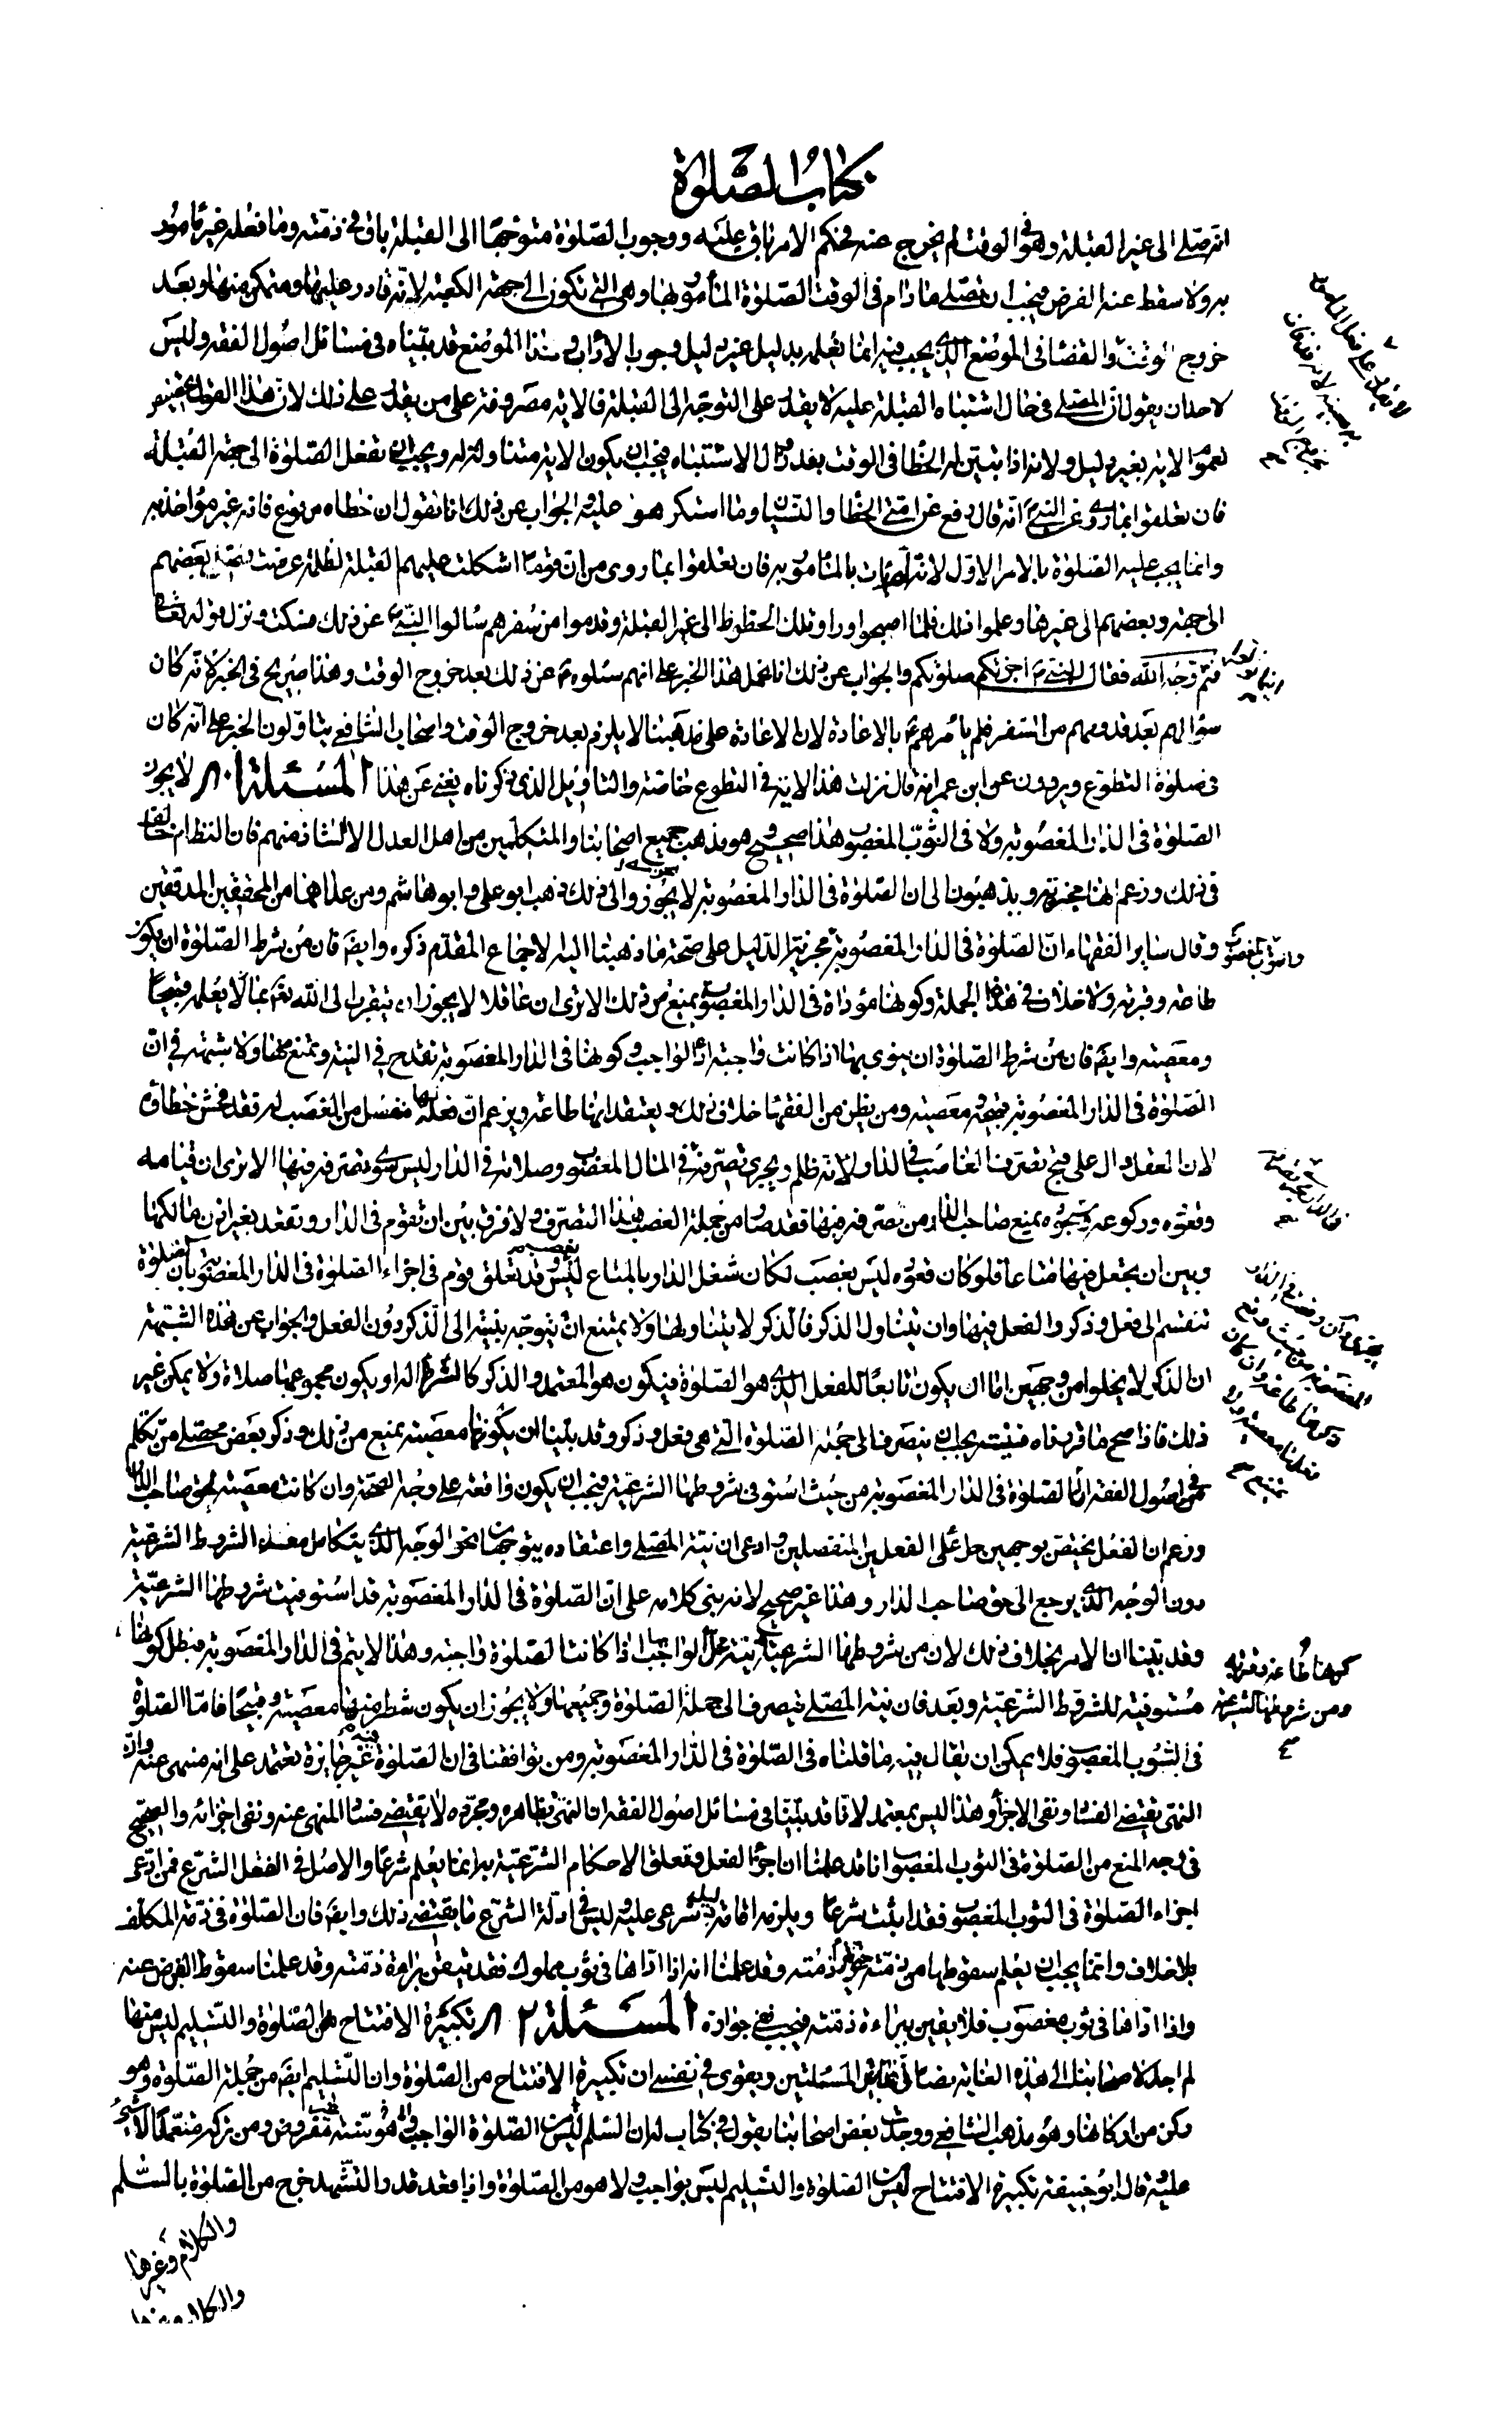 كتاب الصلوة
انه صلى الى غير القبلة وهو في الوقت لم يخرج عنه فحكم الامر باق عليه ووجوب الصلوة متوجها الى القبلة باق في ذمته وما فعله غير مأمور
به ولا سقط عنه الفرض فيجب ان يصلى ما دام في الوقت الصلوة المأمور بها وهى التى تكون الى جهة الكعبة لانه قادر عليها ومتمكن منها وبعد
خروج الوقت والقضا فى الموضع الذى يجب فيه انما يعلم بدليل غير دليل وجوب الاداء وهذا الموضع قد بيناه في مسائل اصول الفقه وليس
لاحد ان يقول ان المصلى في حال اشتباه القبلة عليه لا يقدر على التوجه الى القبلة فالاية مصروفة على من يقدر على ذلك لان هذا القول تخصيص
لعموم الاية بغير دليل ولانه اذا تبين له الخطأ فى الوقت بعد زوال الاشتباه فيجب ان يكون الاية متناولة له ويجب ان يفعل الصلوة الى جهة القبلة
فان تعلقوا بما روى عن النبى انه قال رفع عن امتى الخطأ والنسيان وما استكرهوا عليه والجواب عن ذلك انا نقول ان خطاه مرفوع فانه غير مؤاخذ به
وانما يجب عليه الصلوة بالامر الاول لانه لم يأت بالمأمور به فان تعلقوا بما روى من ان قوما اشكلت عليهم القبلة لظلمة عرضت فصلى بعضهم
الى جهة وبعضهم الى غيرها وعلموا ذلك فلما اصبحوا وراوا تلك الخطوط الى غير القبلة وقدموا من سفرهم سالوا النبى عن ذلك فسكت ونزل قوله تعالى
فثم وجه الله فقال النبى اجزئتكم صلوتكم والجواب عن ذلك انا نحمل هذا الخبر على انهم سئلوه عن ذلك بعد خروج الوقت وهذا صريح في الخبر لانه كان
سؤالهم بعد قدومهم من السفر فلم يأمرهم بالاعادة لان الاعادة على مذهبنا لا يلزم بعد خروج الوقت واصحاب الشافعى يتاولون الخبر على انه كان
فى صلوة التطوع ويروون عن ابن عمر انه قال نزلت هذا الاية فى التطوع خاصة والتاويل الذى ذكرناه يغنى عن هذا المسئلة ٨١ لا يجوز
الصلوة فى الدار المغصوبة ولا فى الثوب المغصوب هذا صحيح وهو مذهب جميع اصحابنا والمتكلمين من اهل العدل الا الشاذ منهم فان النظام خالف
فى ذلك وزعم انها مجزية ويذهبون الى ان الصلوة فى الدار المغصوبة لا يجوز والى ذلك ذهب ابو على وابو هاشم ومن عداهما من المحققين المدققين
وقال ساير الفقهاء ان الصلوة فى الدار المغصوبة مجزية الدليل على صحة ما ذهبنا اليه الاجماع المقدم ذكره وايضا فان من شرط الصلوة ان يكون
طاعة وقربة ولا خلاف في هذه الجملة وكونها مؤداة فى الدار المغصوبة يمنع من ذلك الا ترى ان عاقلا لا يجوز ان يتقرب الى الله تعالى بما لا يعلمه قبيحا
ومعصية وايضا فان من شرط الصلوة ان ينوى بها اذا كانت واجبة اداء الواجب وكونها فى الدار المغصوبة تقدح في النية وتمنع منها ولا شبهة في ان
الصلوة فى الدار المغصوبة قبيحة معصية ومن يظن من الفقها خلاف ذلك ويعتقد انها طاعة ويزعم ان فعله لها منفصل من الغصب له فقد فحش خطأؤه
لان العقل دال على قبح تصرف الغاصب فى الدار لانه ظلم ويجرى تصرفه في المال المغصوب وصلاته في الدار ليس سوى تصرفه فيها الا ترى ان قيامه
وقعوده وركوعه وسجوده يمنع صاحب الدار من تصرفه فيها فقد صار من جملة الغصب هذا التصرف ولا فرق بين ان يقوم فى الدار ويقعد بغير اذن مالكها
وبين ان يجعل فيها متاعا فلو كان قعوده ليس بغصب لكان شغل الدار بالمتاع ليس بغصب وقد تعلق قوم فى اجزاء الصلوة فى الدار المغصوبة بان الصلوة
تنقسم الى فعل وذكر والفعل فيها وان يتناول الذكر فالذكر لا يتناولها ولا يمتنع ان يتوجه بنيته الى الذكر دون الفعل والجواب عن هذه الشبهة
ان الذكر لا يخلوا من وجهين اما ان يكون تابعا للفعل الذى هو الصلوة فيكون هو المعتمد والذكر كالشرط له او يكون مجموعهما صلاة ولا يمكن غير
ذلك فاذا صح ما قررناه فنيته يجب ان ينصرف الى جملة الصلوة التى هى فعل وذكر وقد بينا ان كونها معصية يمنع من ذلك وذكر بعض محصلى من تكلم
في اصول الفقه ان الصلوة فى الدار المغصوبة من حيث استوفى شروطها الشرعية فيجب ان يكون واقعة على وجه الصحة وان كانت معصية لحق صاحب الدار
وزعم ان الفعل يختص بوجهين حل على الفعلين المنفصلين وادعى ان نية المصلى واعتقاده يتوجهان نحو الوجه الذى يتكامل معه الشروط الشرعية
دون الوجه الذى يرجع الى حق صاحب الدار وهذا غير صحيح لانه بنى كلامه على ان الصلوة فى الدار المغصوبة قد استوفيت شروطها الشرعية
وقد بينا ان الامر بخلاف ذلك لان من شروطها الشرعية نية اداء الواجب اذا كانت الصلوة واجبة وهذا لا يتم فى الدار المغصوبة فبطل كونها
مستوفية للشروط الشرعية وبعد فان نية المصلى ينصرف الى جملة الصلوة وجميعها ولا يجوز ان يكون شطر منها معصية وقبيحا فاما الصلوة
فى الثوب المغصوب فلا يمكن ان يقال فيه ما قلناه فى الصلوة فى الدار المغصوبة ومن يوافقنا فى ان الصلوة فيه غير جايزة يعتمد على انه منهى عنه وان
النهى يقتضى الفساد ونفى الاجزاء وهذا ليس بمعتمد لانا قد بينا فى مسائل اصول الفقه ان النهى بظاهره ومجرده لا يقتضى فساد المنهى عنه ونفى اجزائه والصحيح
فى وجه المنع من الصلوة فى الثوب المغصوب انا قد علمنا ان اجزاء الفعل وتعلق الاحكام الشرعية به انما يعلم شرعا والاصل فى العقل الشرع فمن ادعى
اجزاء الصلوة فى الثوب المغصوب فقد اثبت شرعا ويلزمه اقامة دليل شرعى عليه وليس في ادلة الشرع ما يقتضى ذلك وايضا فان الصلوة فى ذمة المكلف
بلا خلاف وانما يجب ان يعلم سقوطها من ذمته ذمته وقد علمنا انه اذا اداها فى ثوب مملوك فقد تيقن براءة ذمته وقد علمنا سقوط الفرض عنه
واذا اداها فى ثوب مغصوب فلا يقين ببراءة ذمته فيجب نفى جوازه المسئلة ٨٢ تكبيرة الافتتاح من الصلوة والتسليم ليس منها
لم اجد لاصحابنا الى هذه الغاية نصا فى هاتين المسئلتين ويقوى في نفسى ان تكبيرة الافتتاح من الصلوة وان التسليم ايضا من جملة الصلوة وهو
ركن من اركانها وهو مذهب الشافعى ووجدت بعض اصحابنا يقول فى كتاب له ان السلم ليس من الصلوة الواجب هو سنة مفروض ومن تركه متعمدا لا شىء
عليه وقال ابو حنيفة تكبيرة الافتتاح ليس من الصلوة والتسليم ليس بواجب ولا هو من الصلوة واذا قعد قدر التشهد خرج من الصلوة بالسلم
والكلام وغيرها